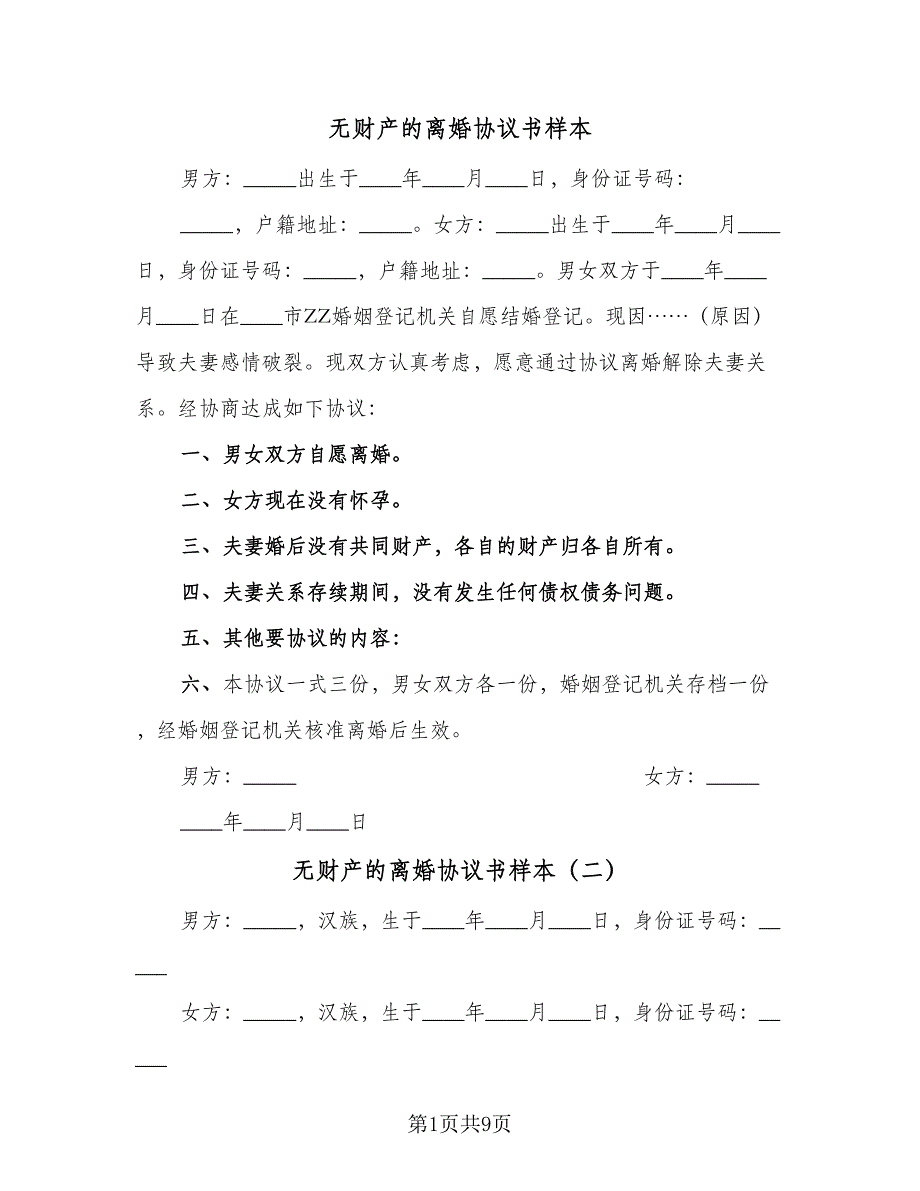 无财产的离婚协议书样本
男方：_____出生于____年____月____日，身份证号码：
_____，户籍地址：_____。女方：_____出生于____年____月____
日，身份证号码：_____，户籍地址：_____。男女双方于____年____
月____日在____市ZZ婚姻登记机关自愿结婚登记。现因……（原因）
导致夫妻感情破裂。现双方认真考虑，愿意通过协议离婚解除夫妻关
系。经协商达成如下协议：
一、男女双方自愿离婚。
二、女方现在没有怀孕。
三、夫妻婚后没有共同财产，各自的财产归各自所有。
四、夫妻关系存续期间，没有发生任何债权债务问题。
五、其他要协议的内容：
六、本协议一式三份，男女双方各一份，婚姻登记机关存档一份
，经婚姻登记机关核准离婚后生效。
男方：_____ 女方：_____
____年____月____日
无财产的离婚协议书样本（二）
男方：_____，汉族，生于____年____月____日，身份证号码：__
___
女方：_____，汉族，生于____年____月____日，身份证号码：__
___
第1页共9页